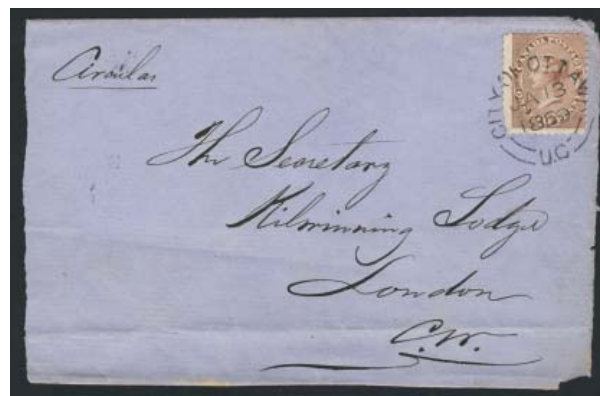 Circular
CITY OF OTTAWA
JA 13
1869
U.C.
The Secretary
Kilwinning Lodge
London
C.W.